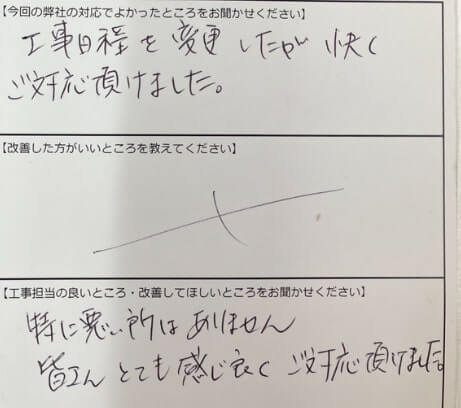 【今回の弊社の対応でよかったところをお聞かせください】
工事日程を変更したが快く
ご対応頂けました。
【改善した方がいいところを教えてください】
【工事担当の良いところ・改善してほしいところをお聞かせください】
特に悪い所はありません
皆さんとても感じ良くご対応頂けました。